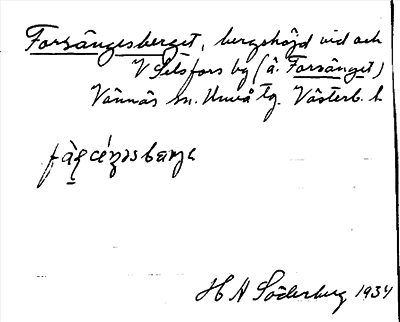 Forsängesberget, bergshöjd vid och
V Selsfors by (å. Forsänget)
Vännäs sn. Umeå tg. Västerb. l.
H A Söderberg 1934